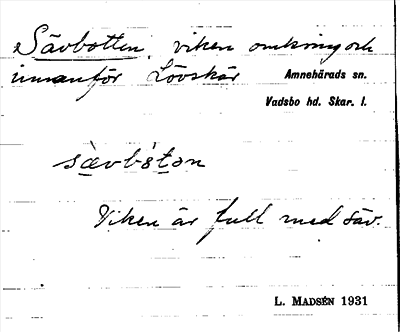 Sävbotten, viken omkring och
innanför Lövskär Amnehärads sn.
Vadsbo hd. Skar. l.
Viken är full med säv.
L. MADSÉN 1931